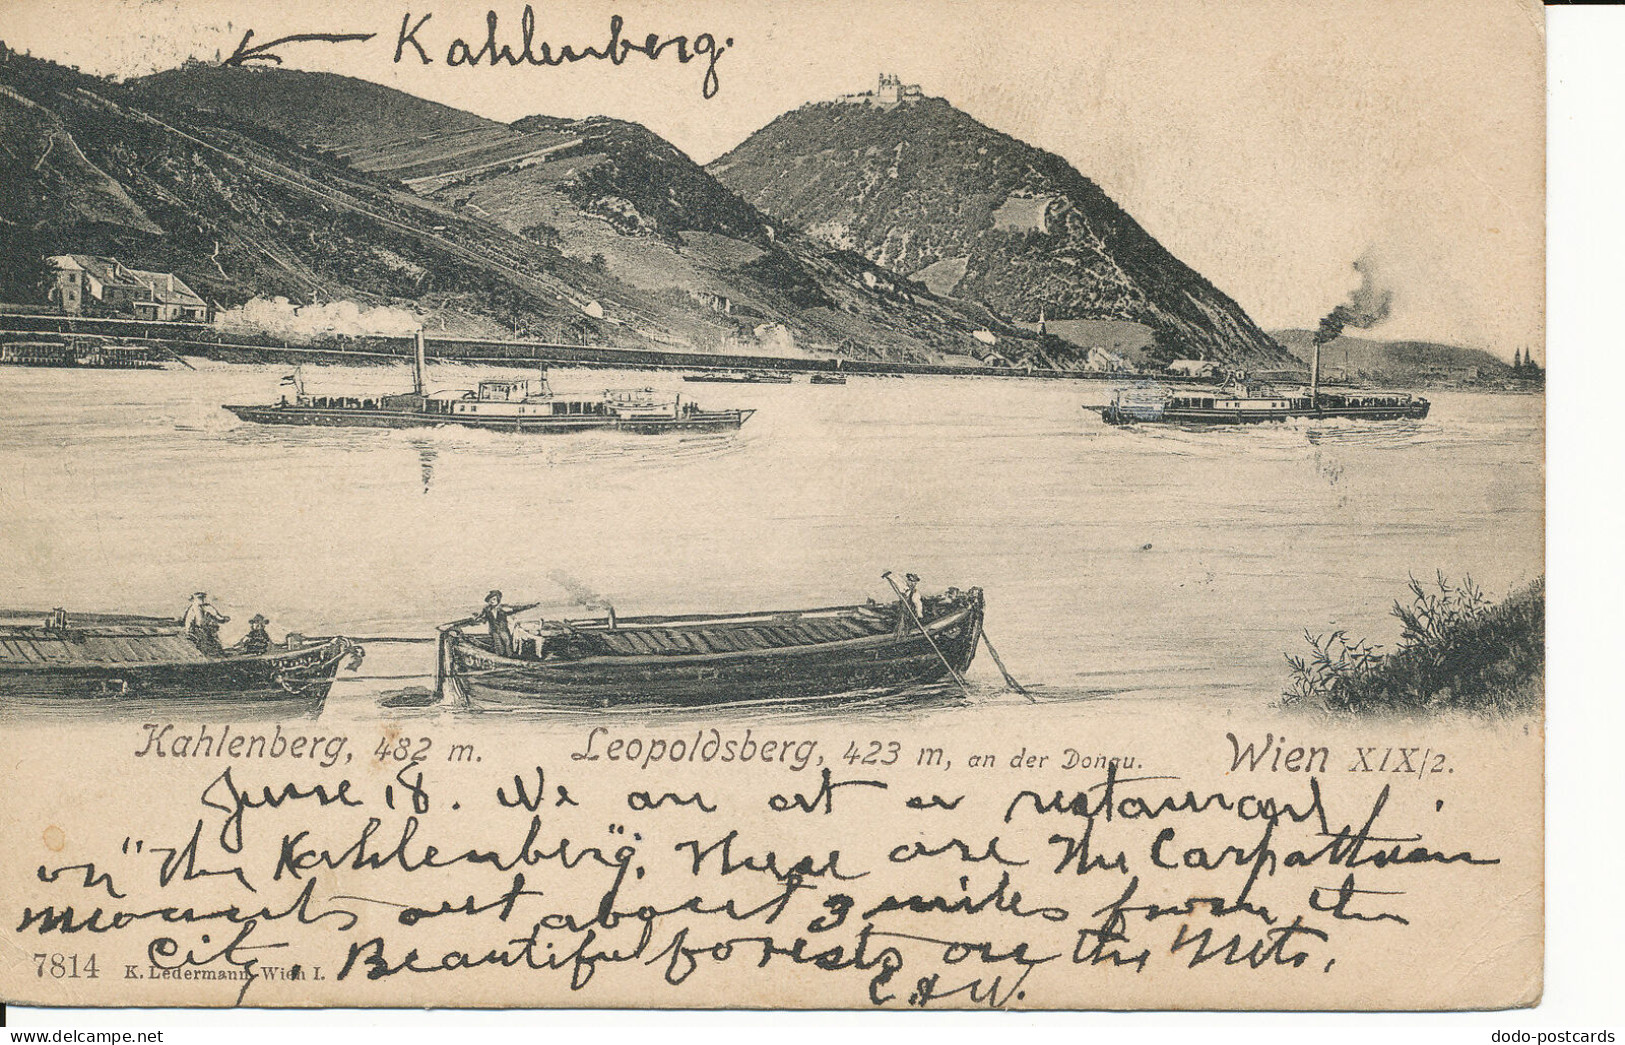 Kahlenberg.
Kahlenberg, 482 m. Leopoldsberg, 423 m, an der Donau. Wien XIX/2.
June 18. We are at a restaurant
on "The Kahlenberg". These are the Carpathian
mounts out about 3 miles from the
City. Beautiful forests on the Mts.
7814 K. Ledermann, Wien I.
C. H. W.
dodo-postcards